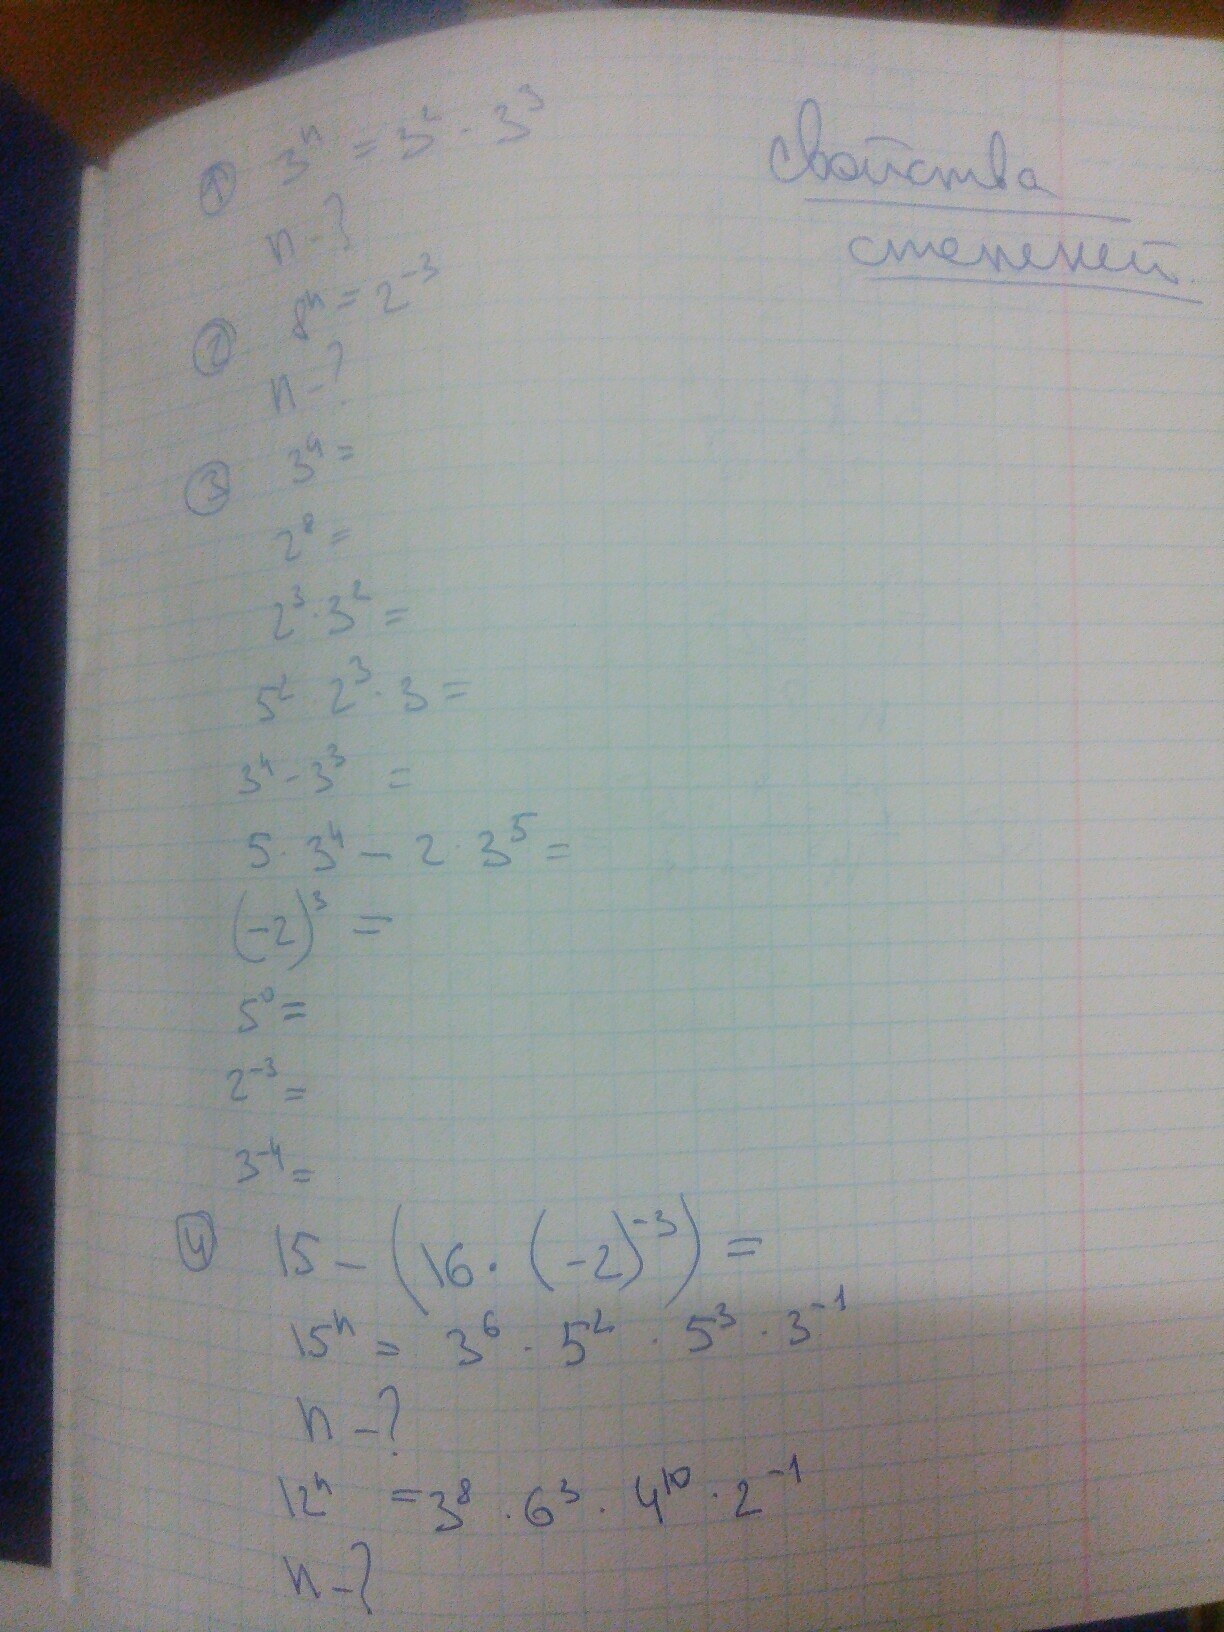 Свойства
степеней.
① 3ⁿ = 3² · 3³
n - ?
② 8ⁿ = 2⁻³
n - ?
③ 3⁴ =
2⁸ =
2³ · 3² =
5² · 2³ · 3 =
3⁴ - 3³ =
5 · 3⁴ - 2 · 3⁵ =
(-2)³ =
5⁰ =
2⁻³ =
3⁻⁴ =
④ 15 - (16 · (-2)⁻³) =
15ⁿ = 3⁶ · 5² · 5³ · 3⁻¹
n - ?
12ⁿ = 3⁸ · 6³ · 4¹⁰ · 2⁻¹
n - ?